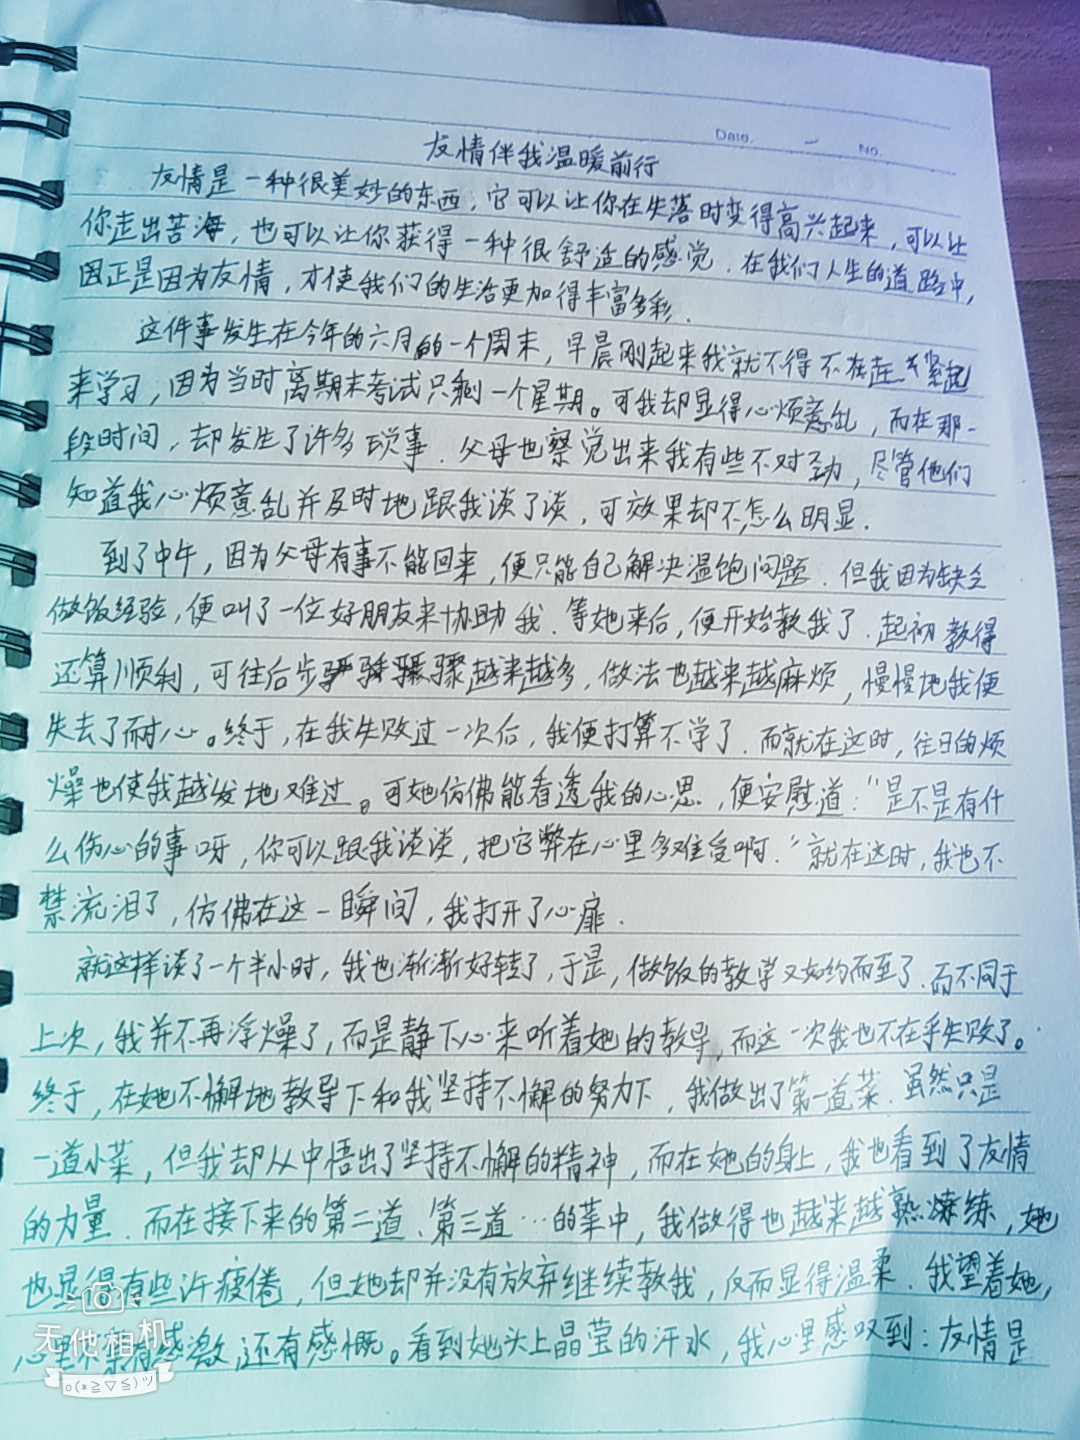 Date. — No.
友情伴我温暖前行
友情是一种很美妙的东西，它可以让你在失落时变得高兴起来，可以让
你走出苦海，也可以让你获得一种很舒适的感觉．在我们人生的道路中，
因正是因为友情，才使我们的生活更加得丰富多彩．
这件事发生在今年的六月的一个周末，早晨刚起来我就不得不在赶紧起
来学习，因为当时离期末考试只剩一个星期。可我却显得心烦意乱，而在那一
段时间，却发生了许多琐事．父母也察觉出来我有些不对劲，尽管他们
知道我心烦意乱并及时地跟我谈了谈，可效果却不怎么明显．
到了中午，因为父母有事不能回来，便只能自己解决温饱问题．但我因为缺乏
做饭经验，便叫了一位好朋友来协助我．等她来后，便开始教我了．起初教得
还算顺利，可往后步骤越来越多，做法也越来越麻烦，慢慢地我便
失去了耐心。终于，在我失败过一次后，我便打算不学了．而就在这时，往日的烦
燥也使我越发地难过。可她仿佛能看透我的心思，便安慰道：“是不是有什
么伤心的事呀，你可以跟我谈谈，把它弊在心里多难受啊．”就在这时，我也不
禁流泪了，仿佛在这一瞬间，我打开了心扉．
就这样谈了一个半小时，我也渐渐好转了，于是，做饭的教学又如约而至了．而不同于
上次，我并不再浮燥了，而是静下心来听着她的教导，而这一次我也不在乎失败了。
终于，在她不懈地教导下和我坚持不懈的努力下，我做出了第一道菜．虽然只是
一道小菜，但我却从中悟出了坚持不懈的精神，而在她的身上，我也看到了友情
的力量．而在接下来的第二道、第三道…的菜中，我做得也越来越熟练，她
也显得有些许疲倦，但她却并没有放弃继续教我，反而显得温柔．我望着她，
心里不禁有感激，还有感慨。看到她头上晶莹的汗水，我心里感叹到：友情是
无他相机
o(*≧▽≦)ツ